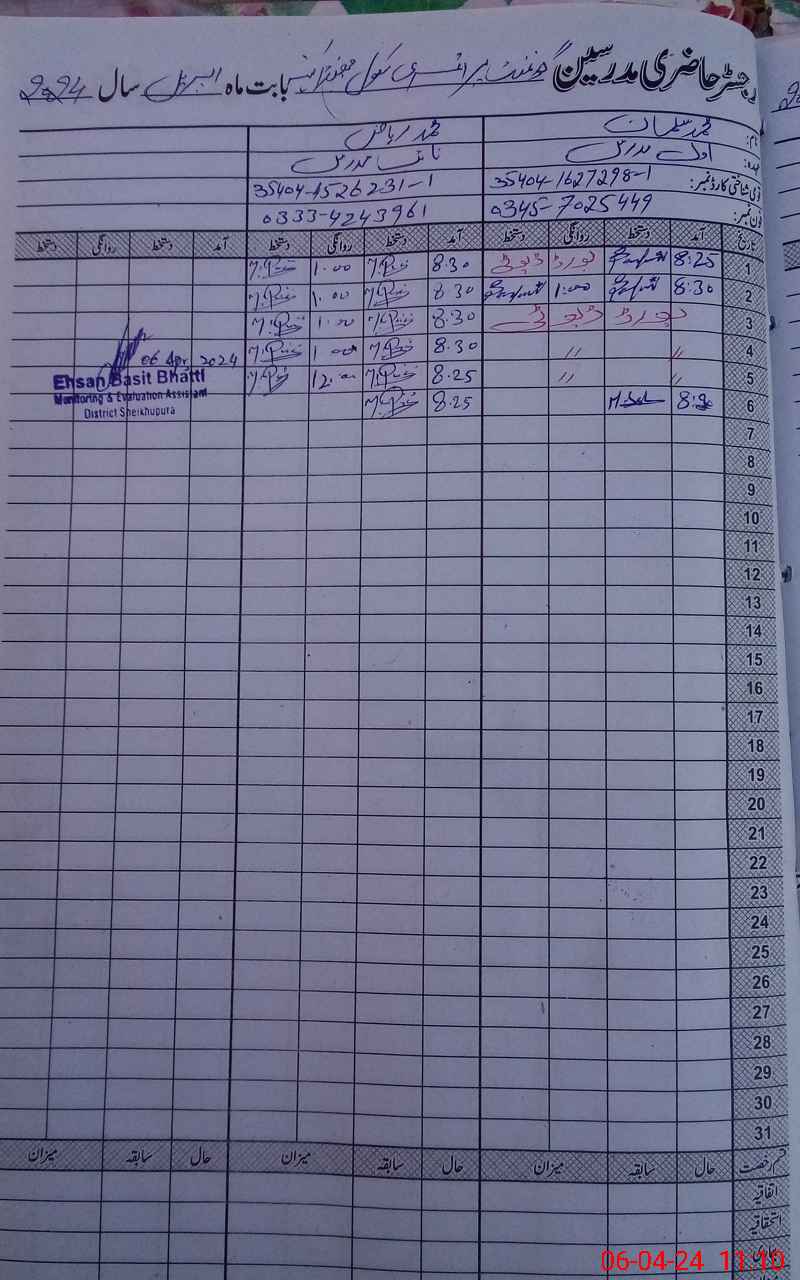 رجسٹر حاضری مدرسین گورنمنٹ پرائمری سکول بابت ماہ اپریل سال 2024
نام: محمد سلمان محمد ریاض
عہدہ: اول مدرس نائب مدرس
قومی شناختی کارڈ نمبر: 35404-1627298-1 35404-1526231-1
فون نمبر: 0345-7025449 0333-4243961
تاریخ آمد دستخط روانگی دستخط آمد دستخط روانگی دستخط آمد دستخط روانگی دستخط
1 8:25 بورڈ ڈیوٹی 8.30 1.00
2 8:30 1:00 8.30 1.00
3 بورڈ ڈیوٹی 8.30 1.00
4 〃 〃 8.30 1.00
5 〃 〃 8.25 12.00
6 8.25
06 Apr 2024
Ehsan Basit Bhatti
Monitoring & Evaluation Assistant
District Sheikhupura
7
8
9
10
11
12
13
14
15
16
17
18
19
20
21
22
23
24
25
26
27
28
29
30
31
قسم رخصت حال سابقہ میزان حال سابقہ میزان حال سابقہ میزان
اتفاقیہ
استحقاقیہ
06-04-24 11:10